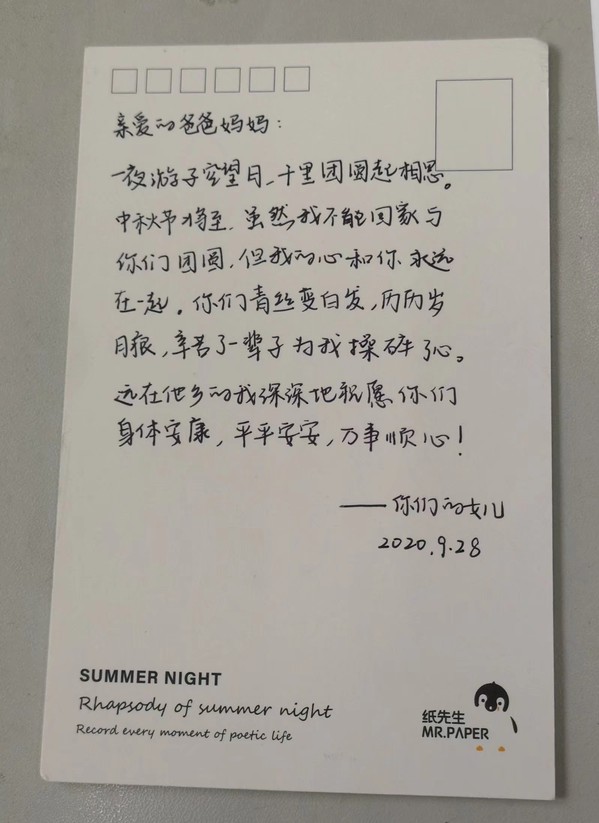 亲爱的爸爸妈妈：
一夜游子空望月，千里团圆起相思。
中秋节将至，虽然我不能回家与
你们团圆，但我的心和你永远
在一起。你们青丝变白发，历历岁
月痕，辛苦了一辈子为我操碎了心。
远在他乡的我深深地祝愿你们
身体安康，平平安安，万事顺心！
——你们的女儿
2020.9.28
SUMMER NIGHT
Rhapsody of summer night
Record every moment of poetic life
纸先生
MR.PAPER